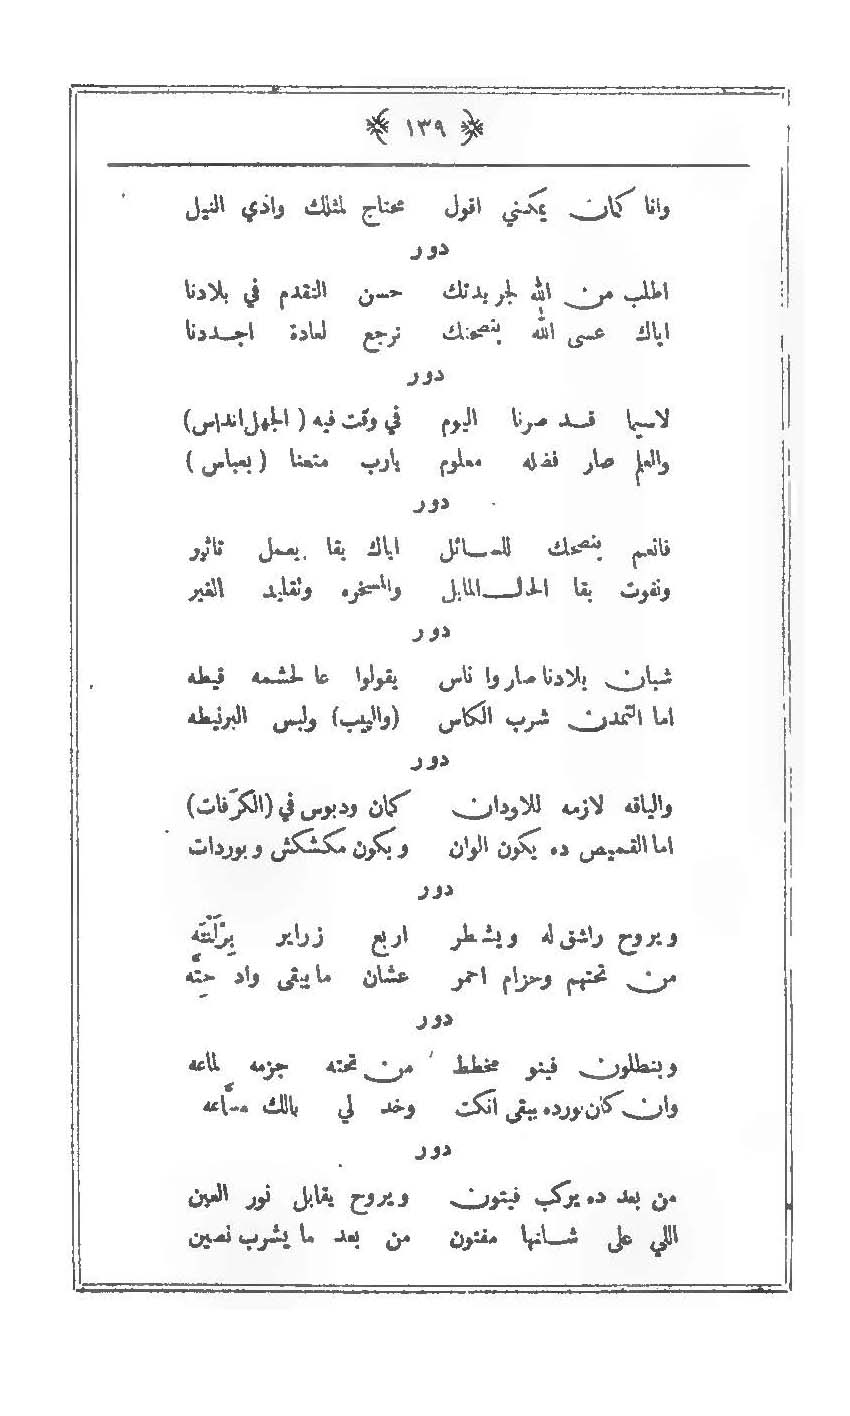 ١٣٩
وانا كمان يمكنني اقول محتاج لمثلك وادي النيل
دور
اطلب من الله لجريدتك حسن التقدم في بلادنا
اياك عسى الله بنصحتك نرجع لعادة اجددنا
دور
لاسيما قد صرنا اليوم في وقت فيه (الجهل انداس)
والعلم صار فضله معلوم يارب متعنا (بعباس)
دور
فانعم بنصحك للسائل اياك بقا يعمل تاثير
ونفوت بقا الحال المايل والمسخره وتقليد الغير
دور
شبان بلادنا صاروا ناس يقولوا عالحشمه قيطه
اما التمدن شرب الكاس (والپيپ) ولبس البرنيطه
دور
والياقه لازمه للاودان كمان ودبوس في (الكرّفات)
اما القميص ده يكون الوان ويكون مكشكش وبوردات
دور
ويروح راشق له ويشطر اربع زراير بِرْلَنْتَه
من تحتهم وحزام احمر عشان ما يبقى واد حِتَّه
دور
وبنطلون فينو مخطط من تحته جزمه لماعه
وان كان نورده يبقى انكت وخد لي بالك مسّاعه
دور
من بعد ده يركب فيتون ويروح يقابل نور العين
اللي على شانها مفتون من بعد ما يشرب نصين